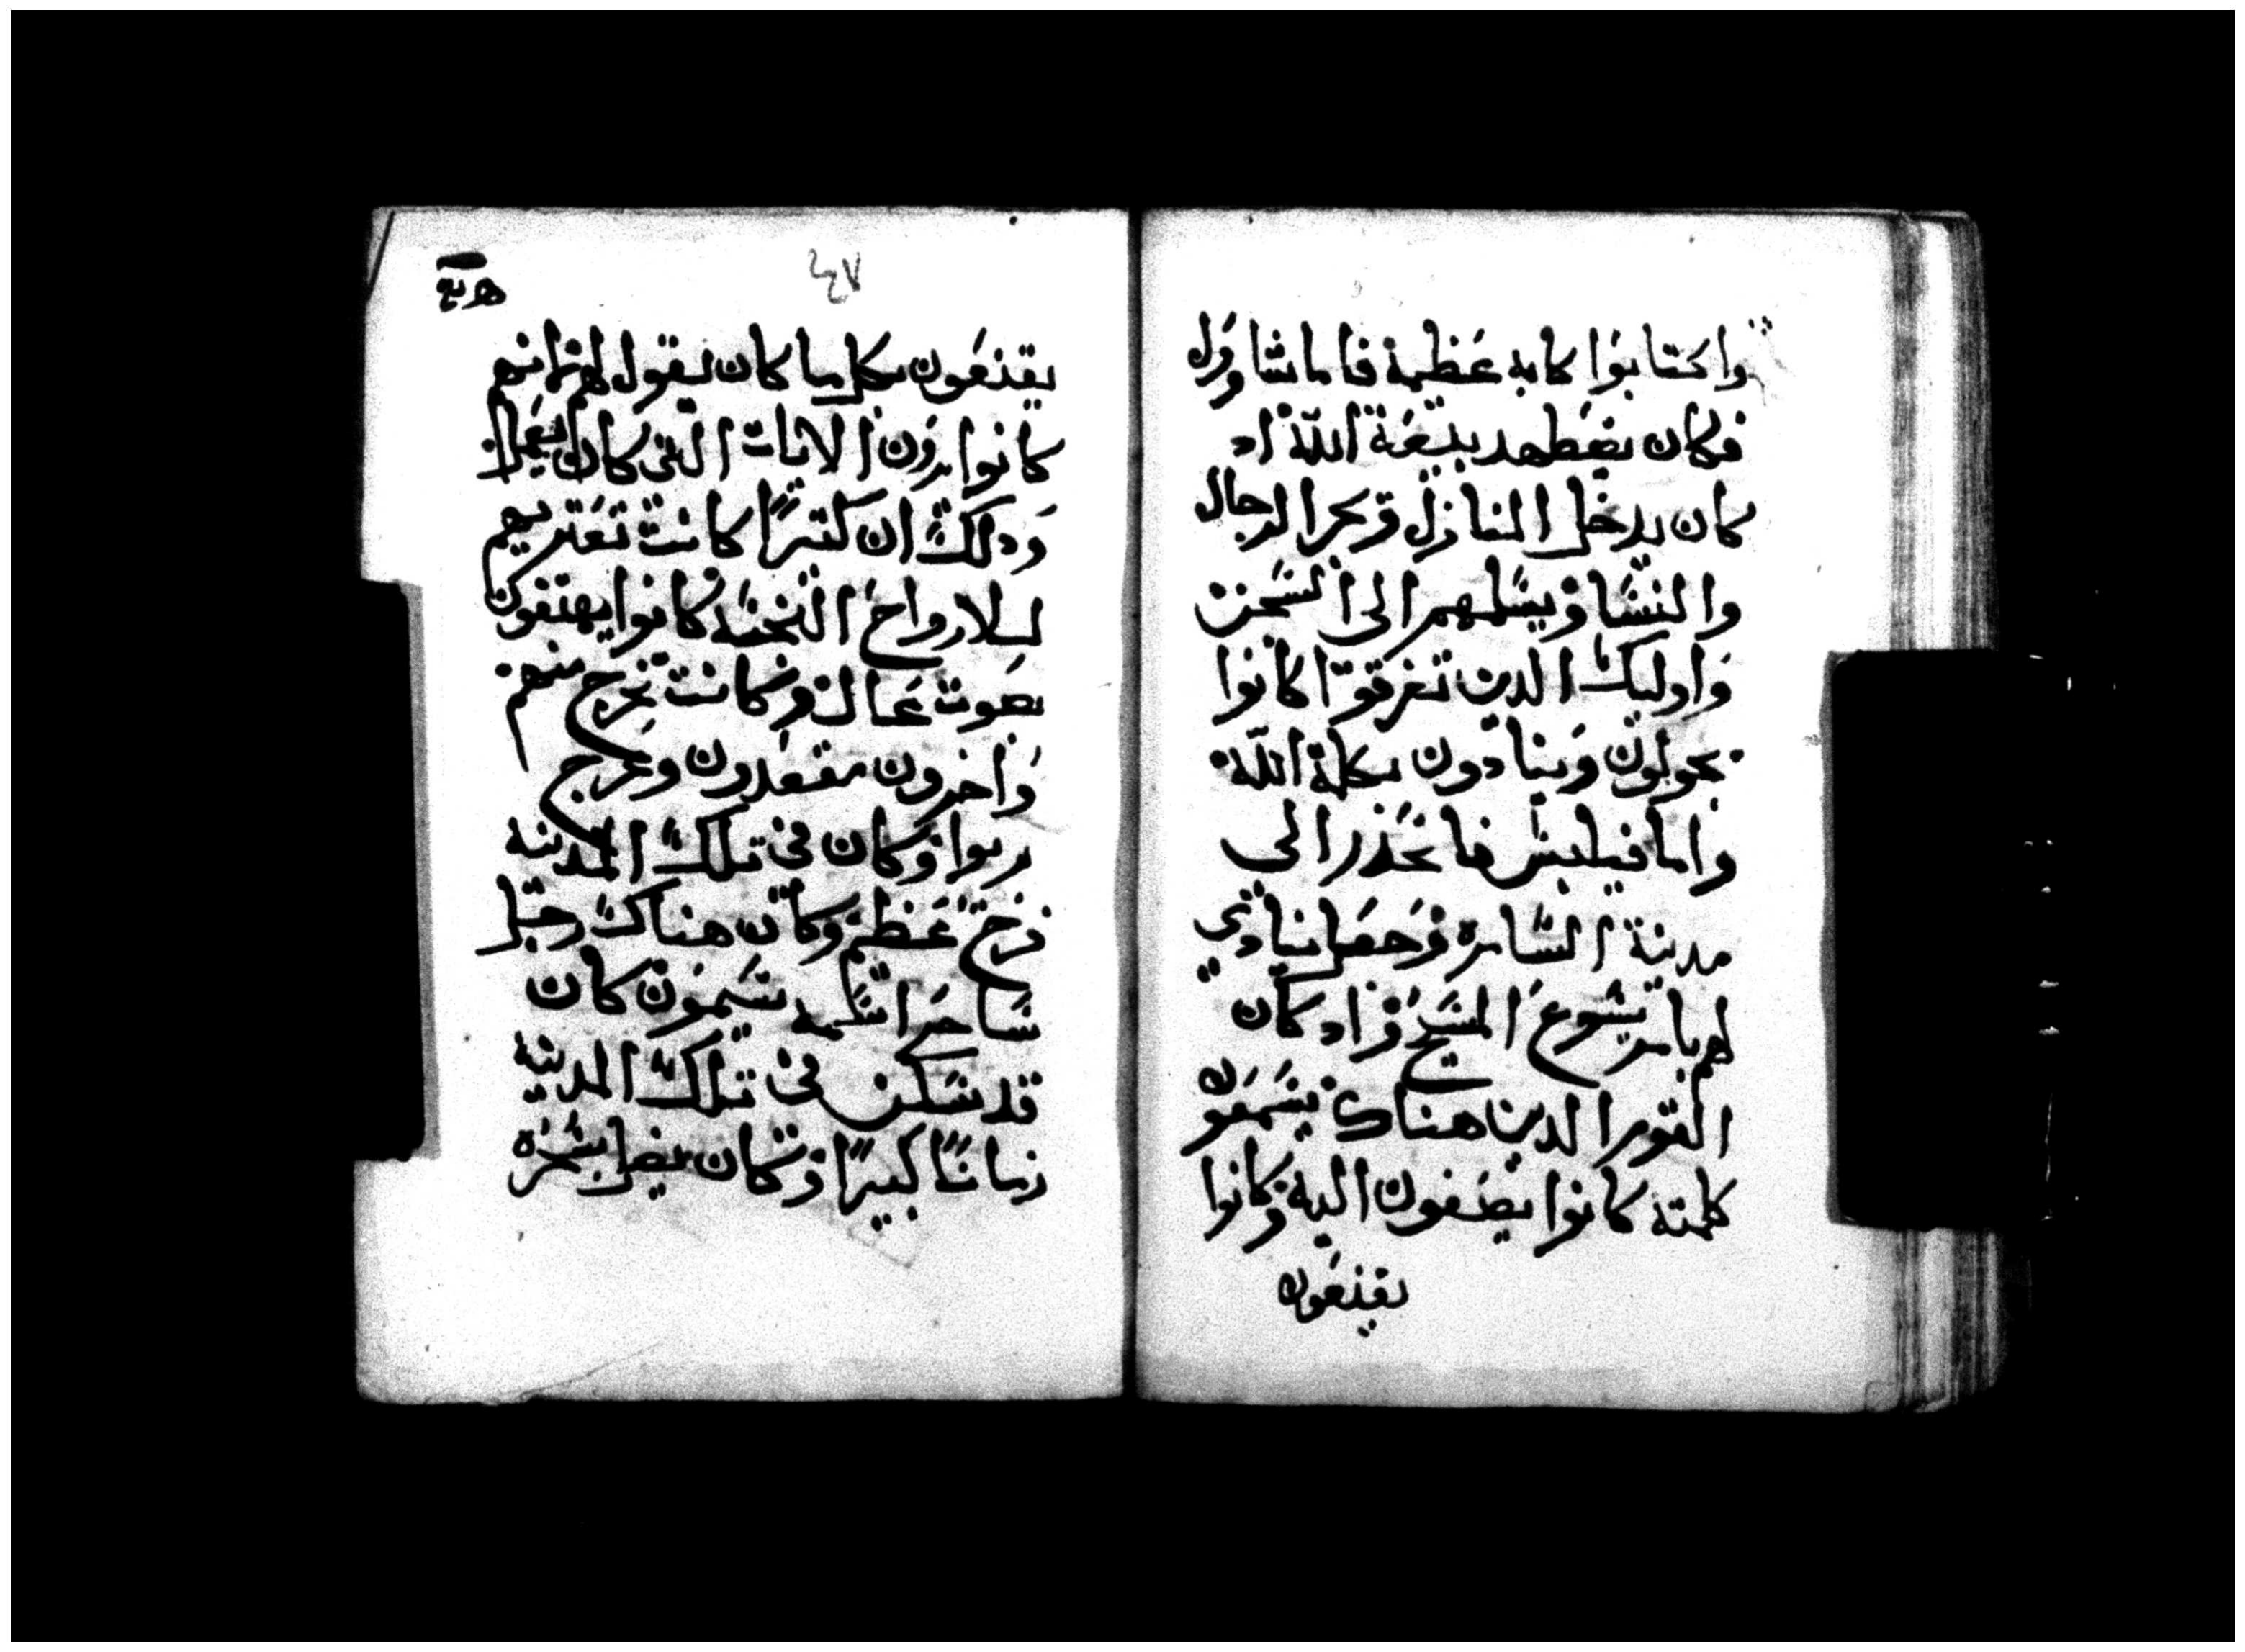 واكتابوا كابه عظيمة فاما شاول
فكان يضطهد بيعة الله اد
كان يدخل المنازل ويجر الرجال
والنسا ويسلمهم الى السجن
واوليك الدين تفرقوا كانوا
يجولون وينادون بكلمة الله
واما فيلبس فانحدر الى
مدينة السامره وجعل ينادي
لهم بامر يشوع المسيح واد كان
القوم الدين هناك يسمعون
كلمته كانوا يصغون اليه وكانوا
يقنعون
٤٧
يقنعون بكل ما كان يقول لهم لانهم
كانوا يرون الايات التي كان يعمل
ودلك ان كتيرًا كانت تعتريهم
للارواح النجسه كانوا يهتفون
بصوت عال وكانت تخرج منهم
واخرون مقعدون وعرج
بروا وكان في تلك المدينه
فرح عظيم وكان هناك رجل
ساحر اسمه سيمون كان
قد سكن في تلك المدينه
زمانًا كبيرًا وكان يضل بسحره